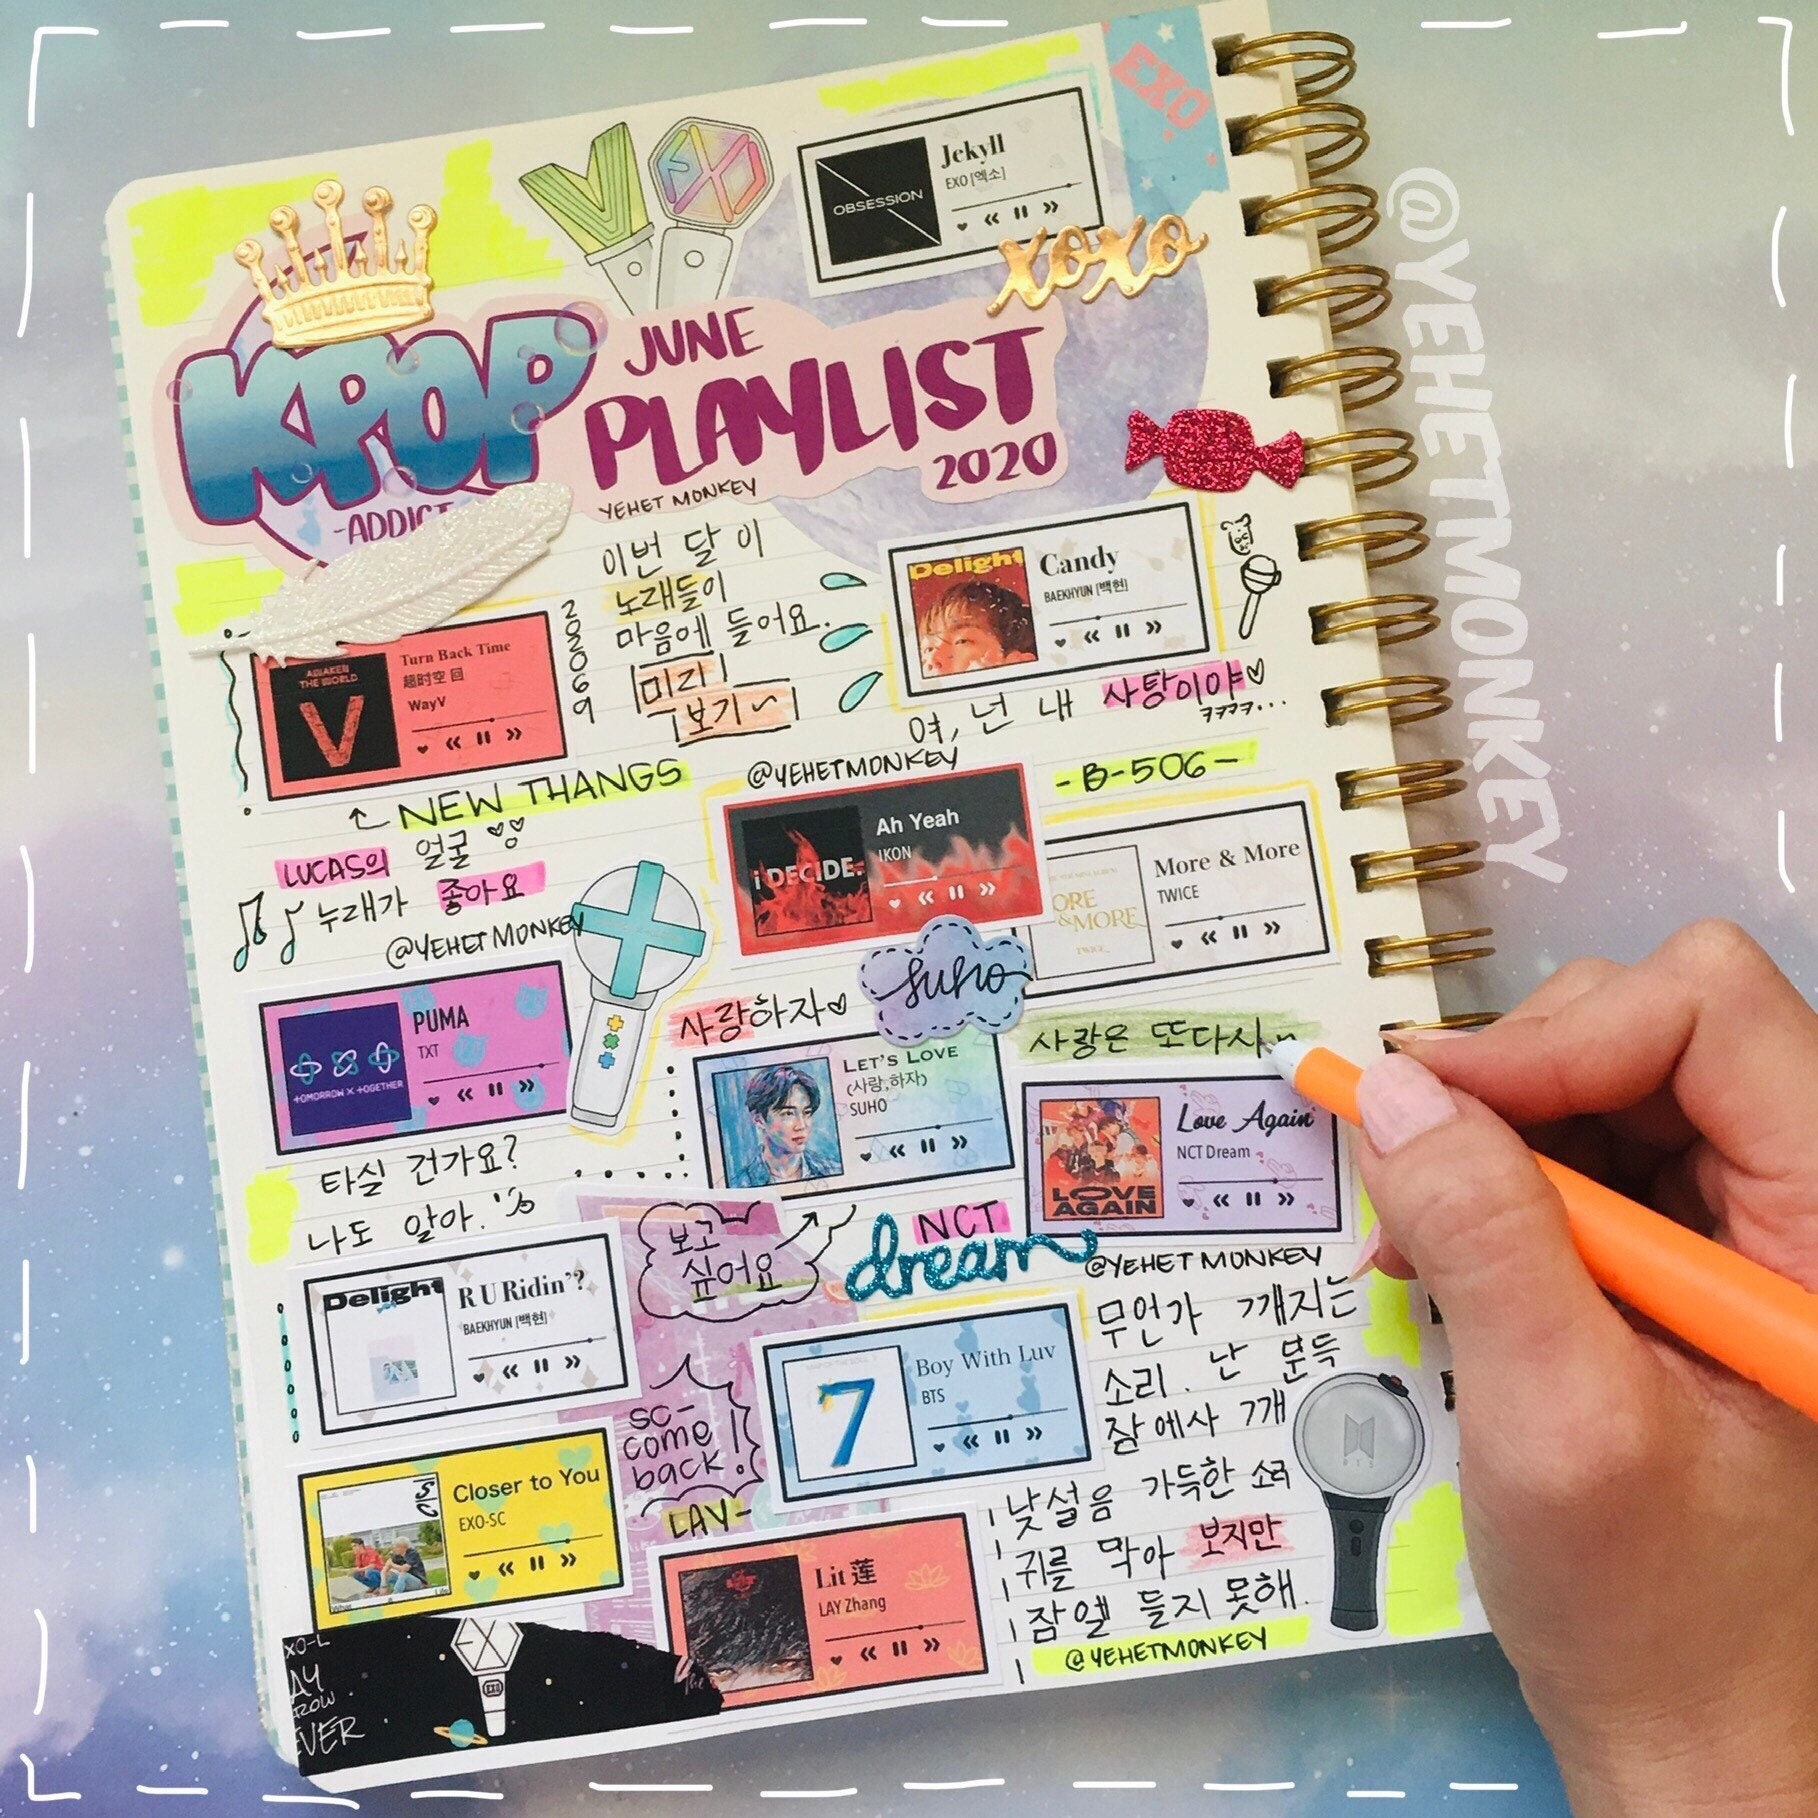 EXO
OBSESSION
Jekyll
EXO [엑소]
XOXO
KPOP
-ADDICT
JUNE
PLAYLIST
2020
YEHET MONKEY
@YEHETMONKEY
이번 달 이
노래들이
마음에 들어요.
미리
보기~
202069
Delight
Candy
BAEKHYUN [백현]
여, 넌 내 사탕이야♡
ㅋㅋㅋㅋ...
AWAKEN
THE WORLD
V
Turn Back Time
超时空 回
WayV
NEW THANGS
LUCAS의 얼굴
노래가 좋아요
@YEHETMONKEY
@YEHETMONKEY
-B-506-
i DECIDE.
Ah Yeah
IKON
ORE
&MORE
TWICE
More & More
TWICE
TOMORROW X TOGETHER
PUMA
TXT
타실 건가요?
나도 알아.
사랑하자♡
SUHO
LET'S LOVE
(사랑,하자)
SUHO
사랑은 또다시
LOVE
AGAIN
Love Again
NCT Dream
NCT
dream
@YEHETMONKEY
보고
싶어요
Delight
R U Ridin'?
BAEKHYUN [백현]
7
Boy With Luv
BTS
무언가 깨지는
소리. 난 문득
잠에사 깨
낯설음 가득한 소리
귀를 막아 보지만
잠엘 들지 못해.
@YEHETMONKEY
SC
Closer to You
EXO-SC
SC-
come
back!
LAY-
Lit 莲
LAY Zhang
XO-L
AY
ROW
EVER
EXO